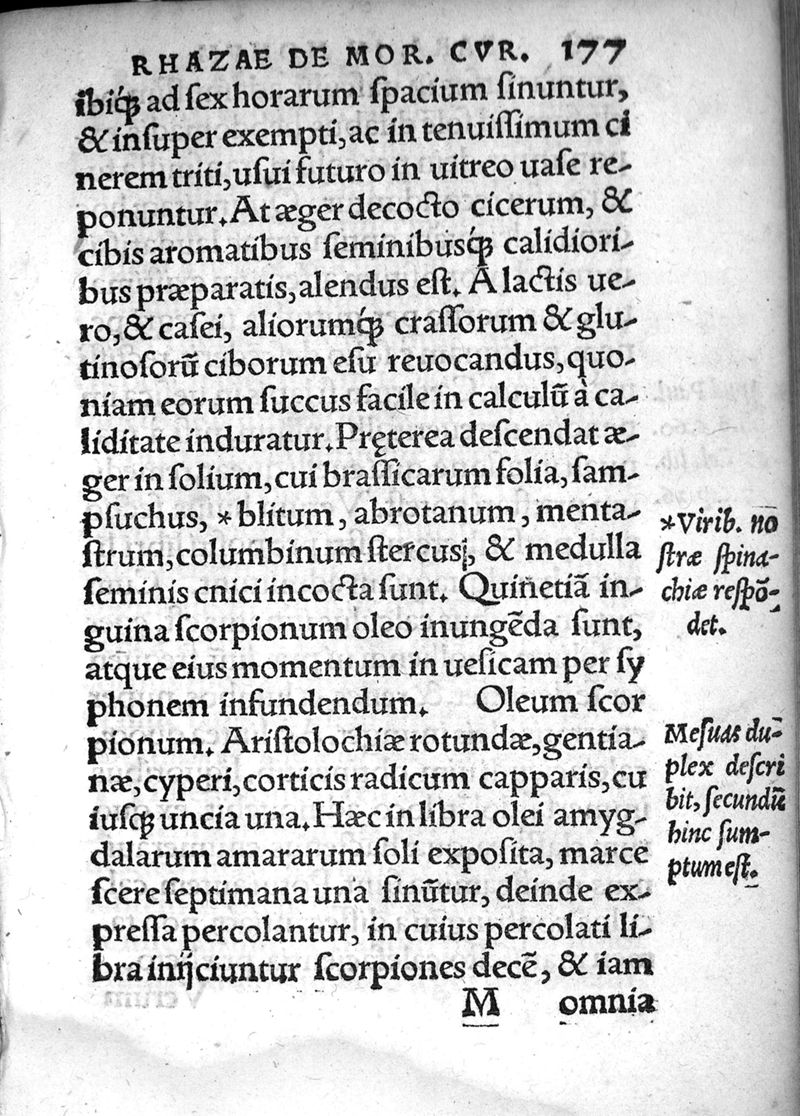 RHAZAE DE MOR. CVR. 177
ibiq́ꝫ ad sex horarum spacium sinuntur,
& insuper exempti, ac in tenuissimum ci
nerem triti, usui futuro in uitreo uase re-
ponuntur. At æger decocto cicerum, &
cibis aromatibus seminibusq́ꝫ calidiori-
bus præparatis, alendus est. A lactis ue-
ro, & casei, aliorumq́ꝫ crassorum & glu-
tinosorũ ciborum esu reuocandus, quo-
niam eorum succus facile in calculũ à ca-
liditate induratur. Pręterea descendat æ-
ger in solium, cui brassicarum folia, sam-
psuchus, *blitum, abrotanum, menta-
strum, columbinum stercus, & medulla
seminis cnici incocta sunt. Quinetiã in-
guina scorpionum oleo inungẽda sunt,
atque eius momentum in uesicam per sy
phonem infundendum. Oleum scor
pionum. Aristolochiæ rotundæ, gentia-
næ, cyperi, corticis radicum capparis, cu
iusqꝫ uncia una. Hæc in libra olei amyg-
dalarum amararum soli exposita, marce
scere septimana una sinũtur, deinde ex-
pressa percolantur, in cuius percolati li-
bra inijciuntur scorpiones decẽ, & iam
M omnia
*Virib. no
stræ spina-
chiæ respõ-
det.
Mesuas du-
plex descri
bit, secundũ
hinc sum-
ptum est.